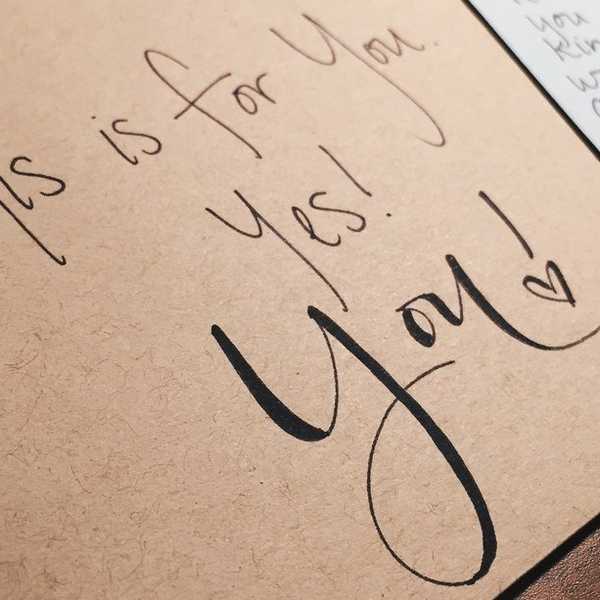 is is for You.
Yes!
You! ♡
you